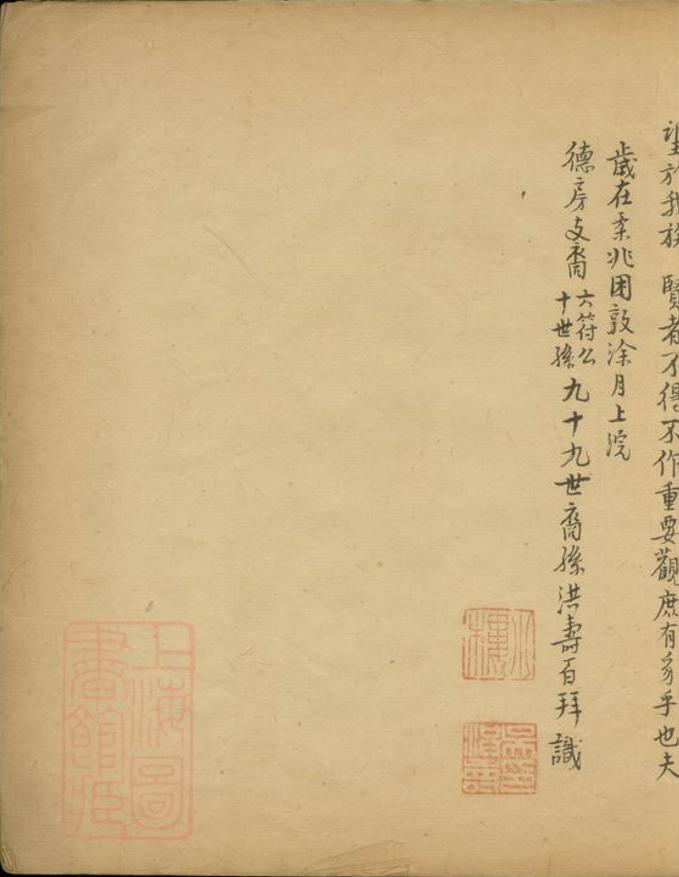 望於我族 賢者不得不作重要觀庶有豸乎也夫
歲在柔兆困敦涂月上浣
德房支裔六符公十世孫九十九世裔孫洪壽百拜識
上海圖書館藏